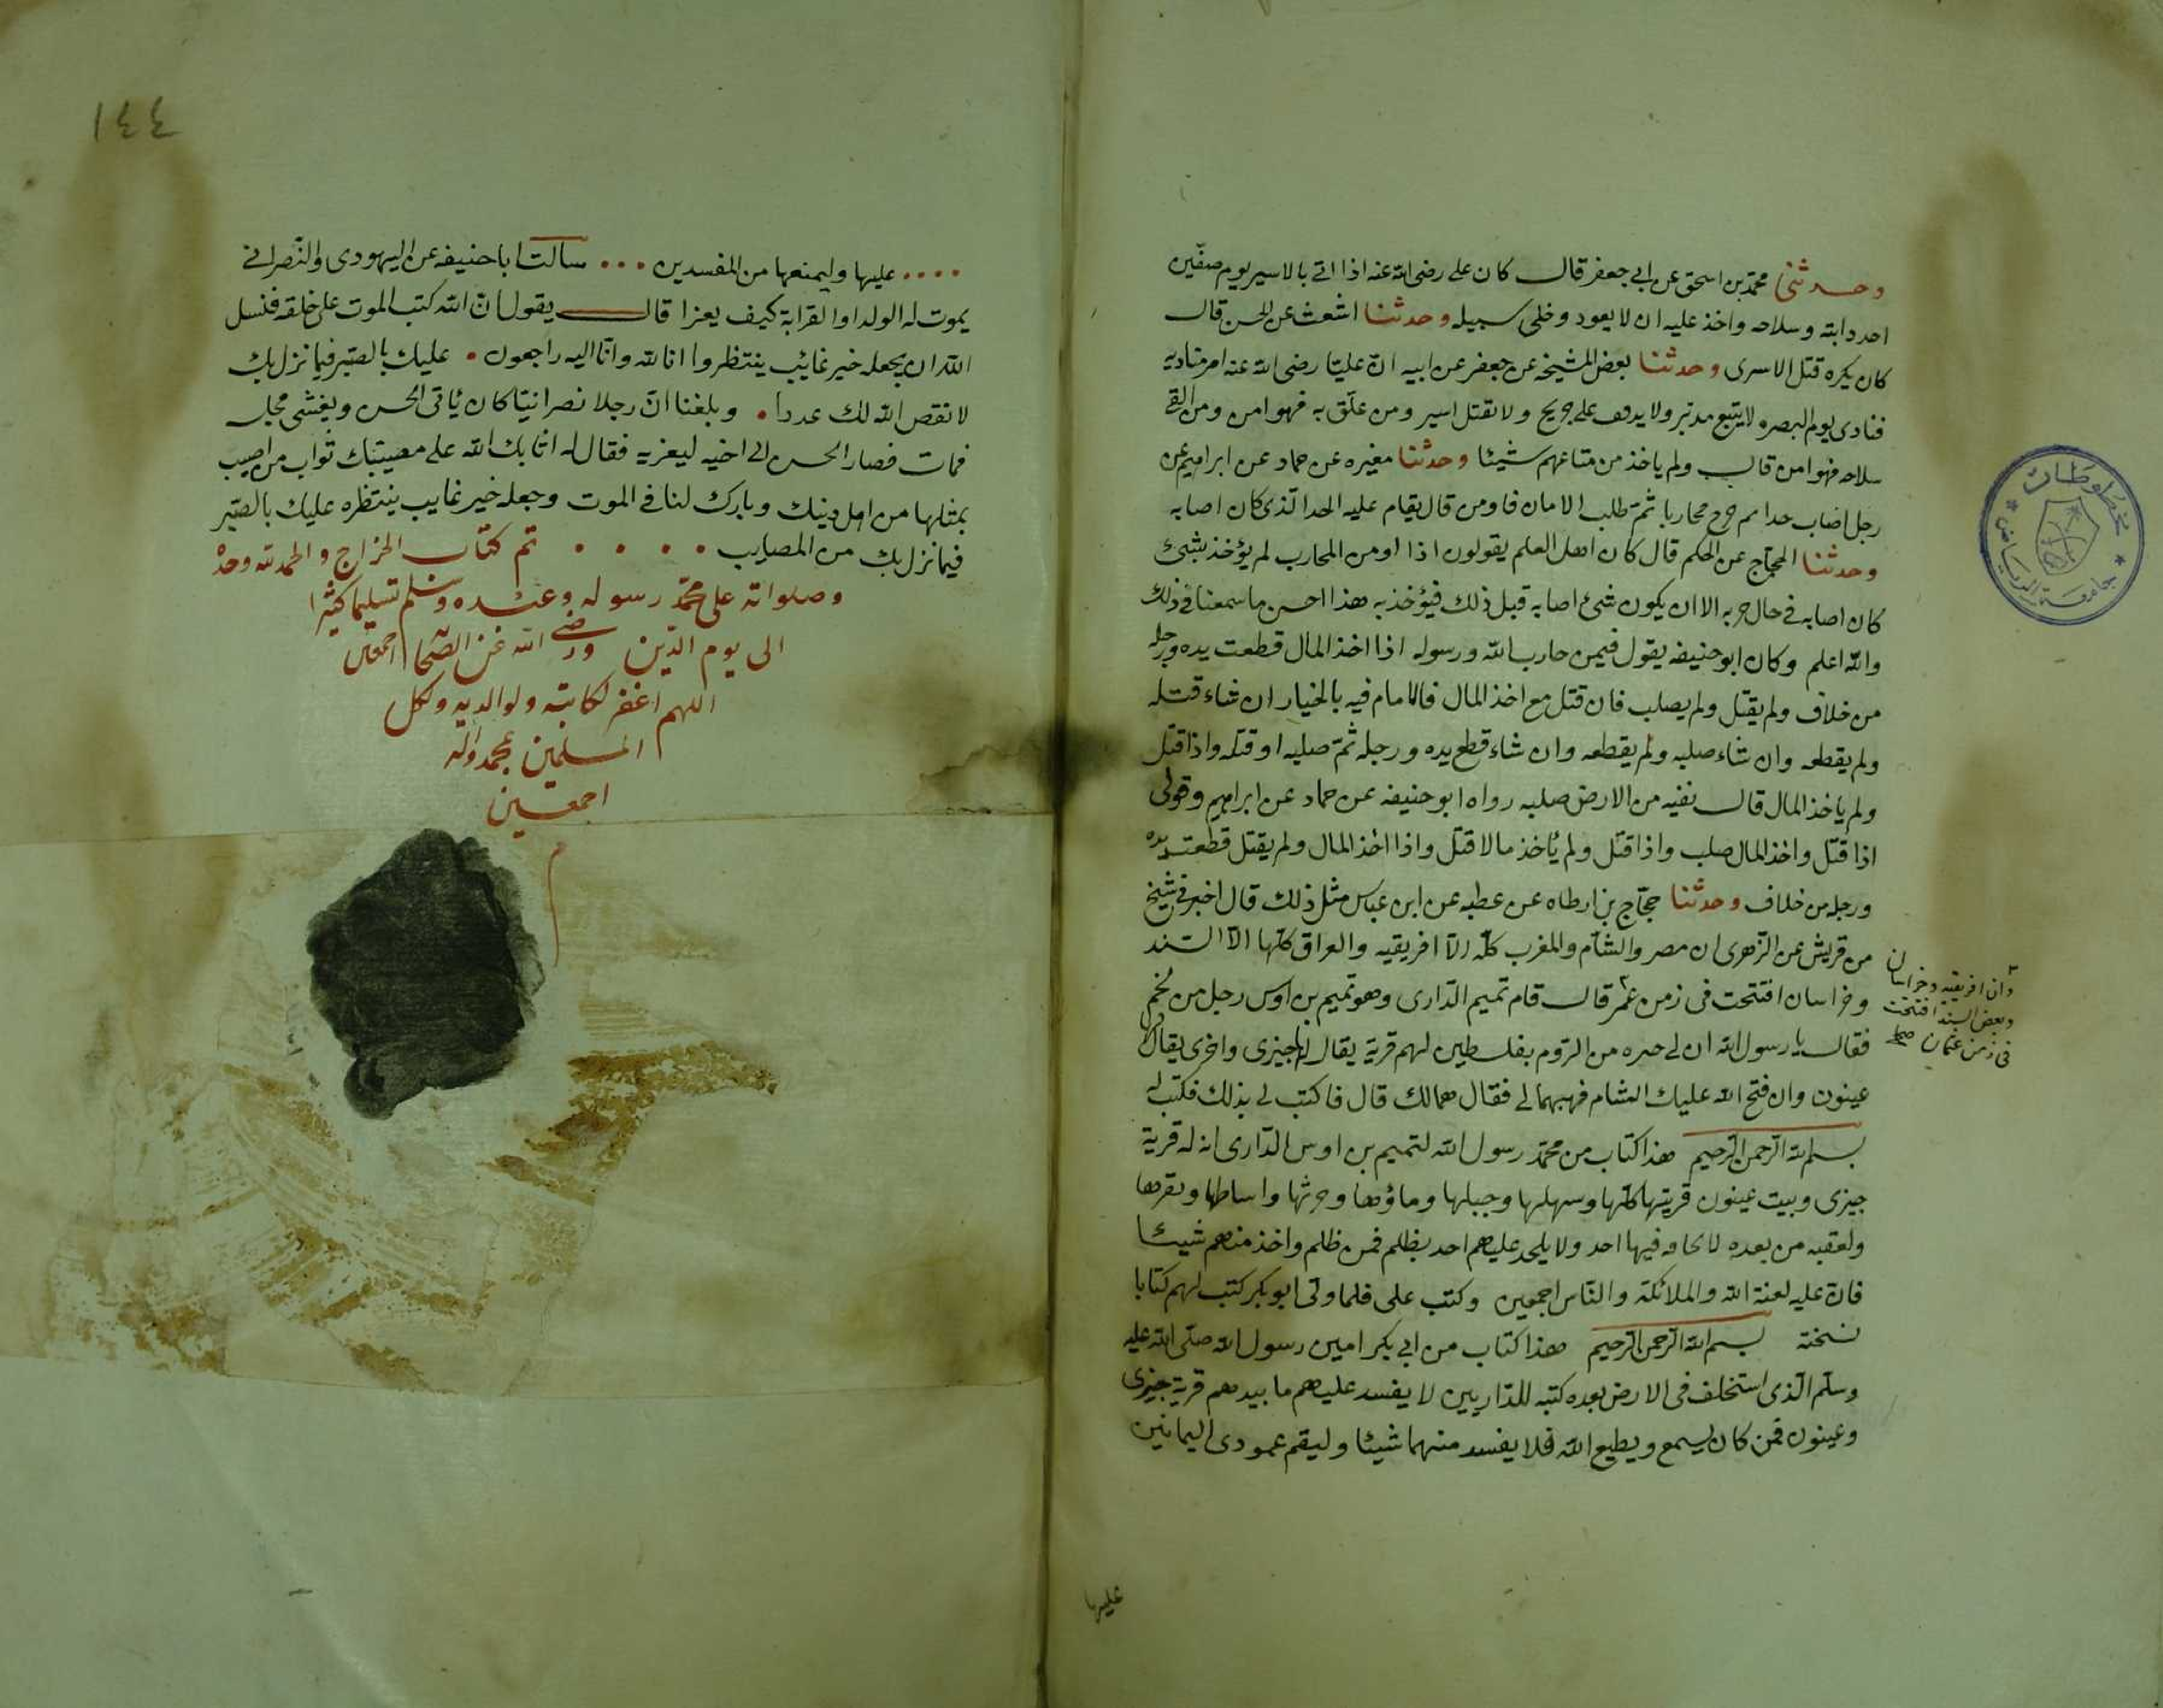 وحدثنى محمد بن اسحق عن ابى جعفر قال كان على رضى الله عنه اذا اتى بالاسير يوم صفين
اخد دابته وسلاحه واخذ عليه ان لا يعود وخلى سبيله وحدثنا اشعث عن الحسن قال
كان يكره قتل الاسرى وحدثنا بعض المشيخه عن جعفر عن ابيه ان عليا رضى الله عنه امر مناديه
فنادى يوم البصره لا يتبع مدبر ولا يدفف على جريح ولا تقتل اسير ومن علق به فهو امن ومن القى
سلاحه فهو امن قال ولم ياخذ من متاعهم شيئا وحدثنا مغيره عن حماد عن ابراهيم عن
رجل اصاب حدا ثم خرج محاربا ثم طلب الامان فاومن قال يقام عليه الحد الذى كان اصابه
وحدثنا الحجاج عن الحكم قال كان اهل العلم يقولون اذا اومن المحارب لم يؤخذ بشئ
كان اصابه فى حال حربه الا ان يكون شئ اصابه قبل ذلك فيؤخذ به هذا احسن ما سمعنا فى ذلك
والله اعلم وكان ابو حنيفه يقول فيمن حارب الله ورسوله اذا اخذ المال قطعت يده ورجله
من خلاف ولم يقتل ولم يصلب فان قتل مع اخذ المال فالامام فيه بالخيار ان شاء قتله
ولم يقطعه وان شاء صلبه ولم يقطعه وان شاء قطع يده ورجله ثم صلبه او قتله واذا قتل
ولم ياخذ المال قال نفيه من الارض صلبه رواه ابو حنيفه عن حماد عن ابراهيم وقولى
اذا قتل واخذ المال صلب واذا قتل ولم يأخذ مالا قتل واذا اخذ المال ولم يقتل قطعت يده
ورجله من خلاف وحدثنا حجاج بن ارطاه عن عطيه عن ابن عباس مثل ذلك قال اخبرنى شيخ
من قريش عن الزهرى ان مصر والشام والمغرب كله الا افريقيه والعراق كلها الا السند
وخراسان افتتحت فى زمن عمر قال قام تميم الدارى وهو تميم بن اوس رجل من لخم
وان افريقيه وخراسان
وبعض السند افتتحت
فى زمن عثمان صح
فقال يا رسول الله ان لى حيره من الروم بفلسطين لهم قرية يقال لها جيزى واخرى يقال لها
عينون وان فتح الله عليك الشام فهبهما لى فقال هما لك قال فاكتب لى بذلك فكتب له
بسم الله الرحمن الرحيم هذا كتاب من محمد رسول الله لتميم بن اوس الدارى ان له قرية
جيزى وبيت عينون قريتها كلها وسهلها وجبلها وماؤها وحرثها وانباطها وبقرها
ولعقبه من بعده لا يحاقه فيها احد ولا يلجه عليهم احد بظلم فمن ظلم واخذ منهم شيئا
فان عليه لعنة الله والملائكة والناس اجمعين وكتب على فلما ولى ابو بكر كتب لهم كتابا
نسخته بسم الله الرحمن الرحيم هذا كتاب من ابى بكر امين رسول الله صلى الله عليه
وسلم الذى استخلف فى الارض بعده كتبه للداريين لا يفسد عليهم ما بيدهم قرية جيزى
وعينون فمن كان يسمع ويطيع الله فلا يفسد منهما شيئا وليقم عمودى اليمانين
عليها
مخطوطات
جامعة الرياض
١٤٤
عليها وليمنعها من المفسدين سالت ابا حنيفه عن اليهودى والنصرانى
يموت له الولد او القرابة كيف يعزا قال يقول ان الله كتب الموت على خلقه فنسل
الله ان يجعله خير غائب ينتظر وا انا لله وانا اليه راجعون عليك بالصبر فيما نزل بك
لا نقص الله لك عددا وبلغنا ان رجلا نصرانيا كان يأتى الحسن ويغشى مجلسه
فمات فصار الحسن الى اخيه ليعزيه فقال له اثابك الله على مصيبتك ثواب من اصيب
بمثلها من اهل دينك وبارك لنا فى الموت وجعله خير غايب ينتظره عليك بالصبر
فيما نزل بك من المصايب تم كتاب الخراج والحمد لله وحده
وصلواته على محمد رسوله وعبده وسلم تسليما كثيرا
الى يوم الدين ورضى الله عن الصحا اجمعين
اللهم اغفر لكاتبه ولوالديه ولكل
المسلمين بمحمد واله
اجمعين
م